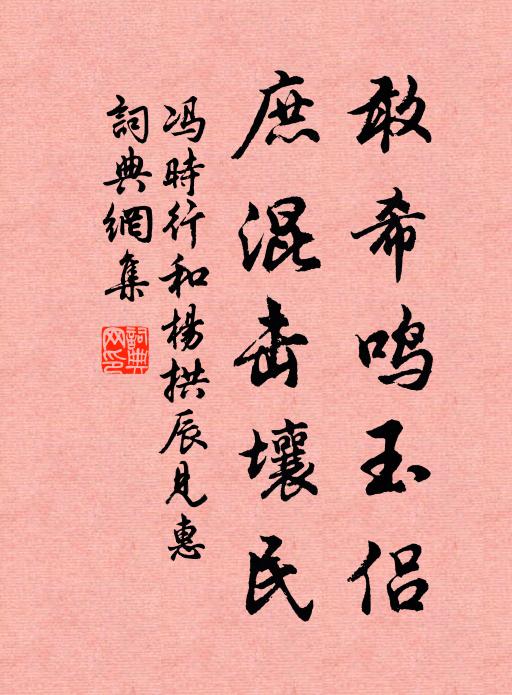 敢希鸣玉侣
庶混击壤民
冯時行和楊拱辰見惠
詞典網集
詞典网印